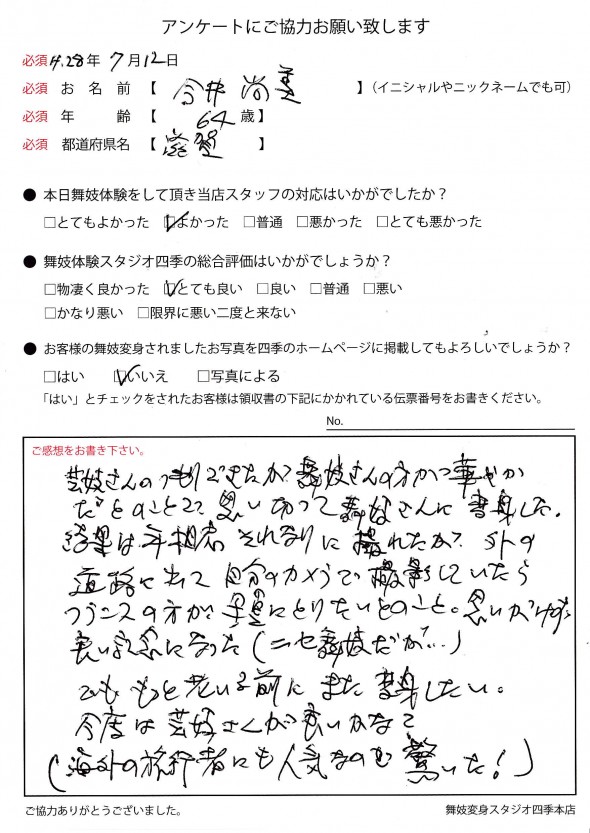 アンケートにご協力お願い致します
必須 H.28年 7月12日
必須 お 名 前 【 今井 尚美 】（イニシャルやニックネームでも可）
必須 年 齢 【 64 歳】
必須 都道府県名 【 滋賀 】
● 本日舞妓体験をして頂き当店スタッフの対応はいかがでしたか？
□とてもよかった ☑よかった □普通 □悪かった □とても悪かった
● 舞妓体験スタジオ四季の総合評価はいかがでしょうか？
□物凄く良かった ☑とても良い □良い □普通 □悪い
□かなり悪い □限界に悪い二度と来ない
● お客様の舞妓変身されましたお写真を四季のホームページに掲載してもよろしいでしょうか？
□はい ☑いいえ □写真による
「はい」とチェックをされたお客様は領収書の下記にかかれている伝票番号をお書きください。
No.
ご感想をお書き下さい。
芸妓さんのつもりできたが、舞妓さんの方が華やか
だとのことで、思い切って舞妓さんに変身した。
結果は年相応それなりに撮れたか？外の
道路に出て自分のカメラで撮影していたら
フランスの方が、写真にとりたいとのこと。思いがけず
良い記念になった（ニセ舞妓だが…）
でも、もっと老いる前にまた変身したい。
今度は芸妓さんが良いかなで
（海外の旅行者にも人気なのも驚いた！）
ご協力ありがとうございました。
舞妓変身スタジオ四季本店